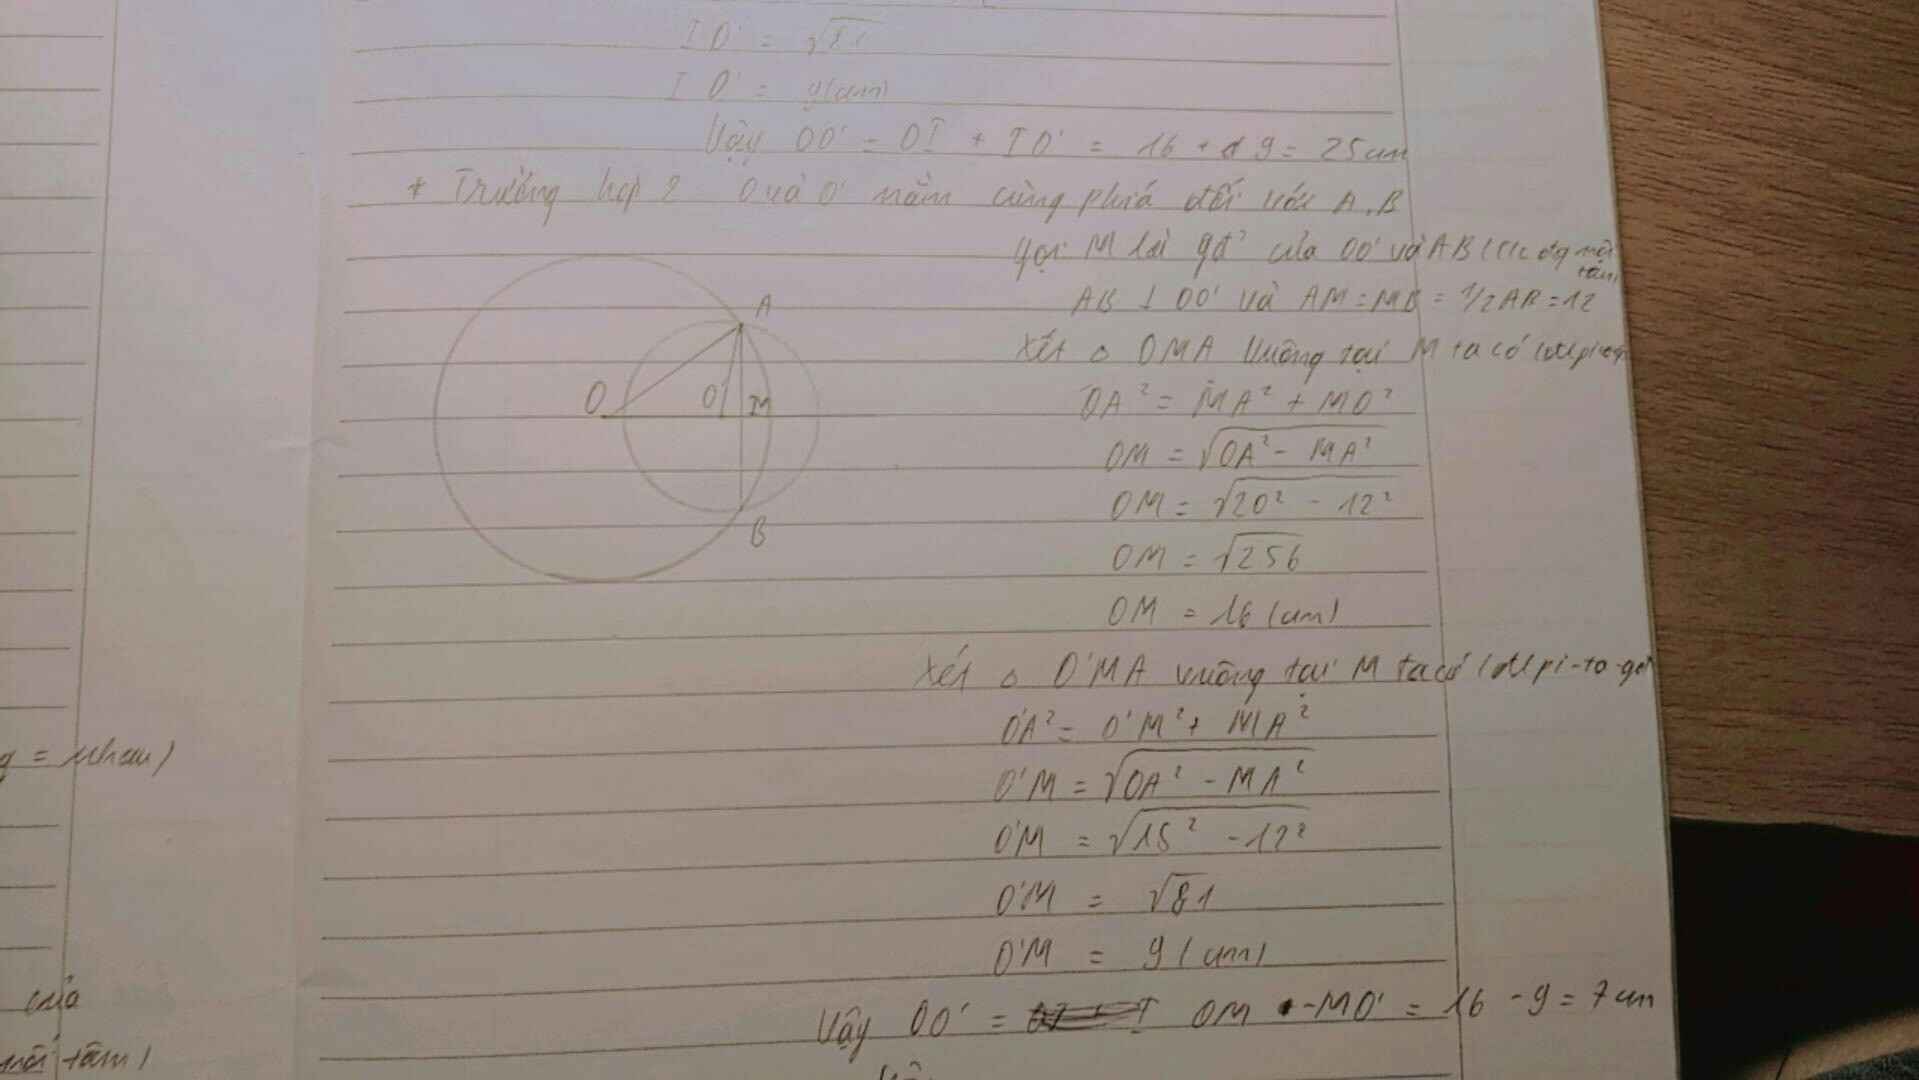 IO' = √81
IO' = 9(cm)
Vậy OO' = OI + IO' = 16 + 9 = 25cm
+ Trường hợp 2 O và O' nằm cùng phía đối với A,B
Gọi M là gđ² của OO' và AB (t/c đg nối tâm)
AB ⊥ OO' và AM = MB = 1/2AB = 12
Xét △ OMA vuông tại M ta có
OA² = MA² + MO²
OM = √OA² - MA²
OM = √20² - 12²
OM = √256
OM = 16 (cm)
Xét △ O'MA vuông tại M ta có (đtl pi-to-go
O'A² = O'M² + MA²
O'M = √OA² - MA²
O'M = √15² - 12²
O'M = √81
O'M = 9 (cm)
Vậy OO' = OM - MO' = 16 - 9 = 7cm
A
O
O'
M
B
của
nối tâm)